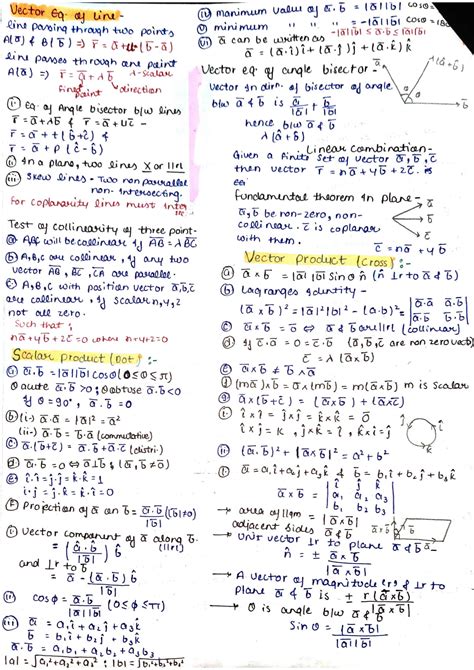 Vector Eq. of Line -
line passing through two points
A(ā) & B(b̄) ⇒ r̄ = ā + μ(b̄ - ā)
line passes through one point
A(ā) ⇒ r̄ = ā + λb̄ λ-scalar
fixed point direction
(i) Eq. of Angle bisector b/w lines
r̄ = ā + λb̄ & r̄ = ā + μc̄ -
r̄ = ā + t(b̂ + ĉ) &
r̄ = ā + p(ĉ - b̂)
(ii) In a plane, two lines X or ||rl
(iii) Skew lines - Two non parallel
non-intersecting.
For coplanarity lines must
Test of collinearity of three point -
(a) ABC will be collinear if A̅B̅ = λB̅C̅
(b) A,B,C are collinear, if any two
vector A̅B̅, B̅C̅, C̅A̅ are parallel.
(c) A,B,C with position vector ā,b̄,c̄
are collinear, if scalar x,y,z
not all zero.
Such that :
xā + yb̄ + zc̄ = 0 where x+y+z=0
Scalar product (Dot) :-
(a) ā.b̄ = |ā||b̄| cosθ (0≤θ≤π)
θ acute ā.b̄ > 0 ; θ obtuse ā.b̄ < 0
if θ = 90°, ā.b̄ = 0
(b) (i) - ā.ā = |ā|² = ā²
(ii) - ā.b̄ = b̄.ā (commutative)
(c) ā.(b̄ + c̄) = ā.b̄ + ā.c̄ (distri.)
(d) ā.b̄ = 0 ⇔ ā ⊥ b̄ (ā, b̄ ≠ 0)
(e) î.î = ĵ.ĵ = k̂.k̂ = 1
î.ĵ = ĵ.k̂ = 0
(f) Projection of ā on b̄ = ā.b̄/|b̄| (|b̄| ≠ 0)
(i) Vector component of ā along b̄ -
= (ā.b̄/b̄²) b̄ (||rl)
and ⊥r to = ā - (ā.b̄/b̄²) b̄
(ii) cosφ = ā.b̄/|ā||b̄| (0≤φ≤π)
(iii) ā = a₁î + a₂ĵ + a₃k̂
b̄ = b₁î + b₂ĵ + b₃k̂
|ā| = √a₁²+a₂²+a₃² ; |b̄| = √b₁²+b₂²+b₃²
(iv) maximum value of ā.b̄ = |ā||b̄|
(v) minimum " " " = -|ā||b̄|
-|ā||b̄| ≤ ā.b̄ ≤ |ā||b̄|
(vi) ā can be written as
ā = (ā.î)î + (ā.ĵ)ĵ + (ā.k̂)k̂
Vector eq. of angle bisector -
λ(â + b̂)
Vector in dir. of bisector of angle
b/w ā & b̄ is ā/|ā| + b̄/|b̄|
hence b/w ā & b̄
λ(â + b̂)
Linear combination -
Given a finite set of vector ā, b̄, c̄
then vector r̄ = xā + yb̄ + zc̄ . is
Fundamental theorem in plane -
ā, b̄ be non-zero, non-
collinear. c̄ is coplanar
with them.
c̄ = xā + yb̄
Vector product (cross) :-
(a) ā × b̄ = |ā||b̄| sinθ n̂ (n̂ ⊥r to ā & b̄)
(b) Lagranges identity -
(ā × b̄)² = |ā|²|b̄|² - (ā.b̄)² = |ā.ā ā.b̄|
|ā.b̄ b̄.b̄|
(c) ā × b̄ = 0 ⇔ ā & b̄ are ||rl (collinear)
(ā, b̄, c̄ are non zero vect)
c̄ = λ(ā × b̄)
(e) ā × b̄ ≠ b̄ × ā
(f) (mā) × b̄ = ā × (mb̄) = m(ā × b̄) m is scalar
(g) ā × (b̄ + c̄) = (ā × b̄) + (ā × c̄)
(i) î × î = ĵ × ĵ = k̂ × k̂ = 0
î × ĵ = k̂, ĵ × k̂ = î, k̂ × î = ĵ
(ii) (ā.b̄)² + |ā × b̄|² = a² b²
(iii) ā = a₁î + a₂ĵ + a₃k̂ & b̄ = b₁î + b₂ĵ + b₃k̂
ā × b̄ = | î ĵ k̂ |
| a₁ a₂ a₃ |
| b₁ b₂ b₃ |
→ area of ||gm = |ā × b̄|
adjacent sides ā & b̄
→ Unit vector ⊥r to plane ā & b̄ -
n̂ = ± ā × b̄/|ā × b̄|
→ A vector of magnitude (r) & ⊥r to
plane ā & b̄ is ± r(ā × b̄)/|ā × b̄|
→ θ is angle b/w ā & b̄
Sinθ = |ā × b̄|/|ā||b̄|